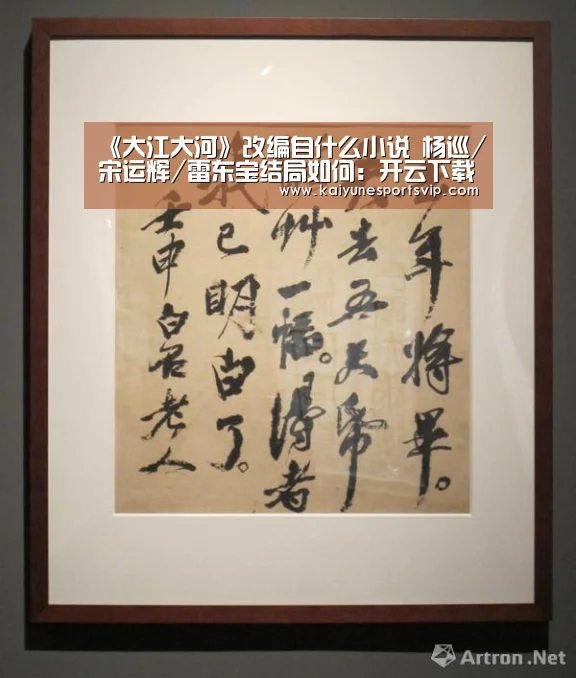 《大江大河》改编自什么小说 杨巡/
宋运辉/雷东宝结局如何：开云下载
www.kaiyunesportsvip.com
年將畢。
去五尺帋
艸一幅。得者
我已明白了。
壬申白石老人
Artron.Net